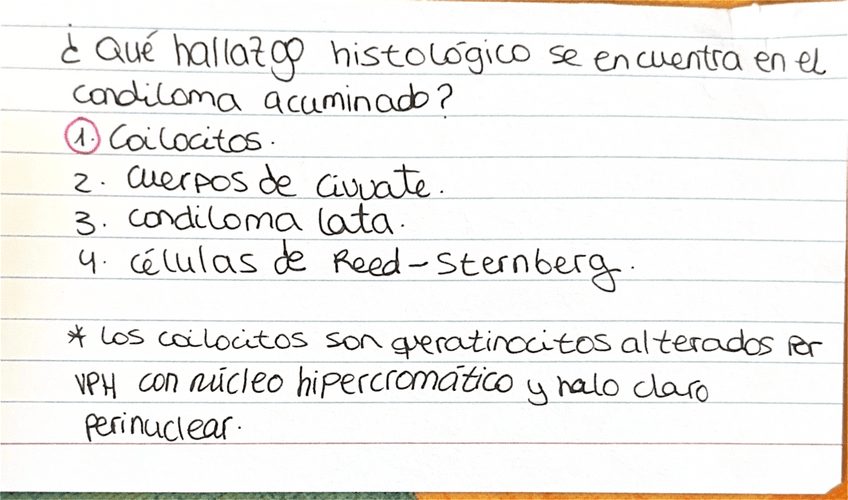 ¿ Qué hallazgo histológico se encuentra en el
condiloma acuminado?
1. Coilocitos.
2. cuerpos de civvate.
3. condiloma lata.
4. células de Reed-Sternberg.
* los coilocitos son queratinocitos alterados por
VPH con núcleo hipercromático y halo claro
perinuclear.